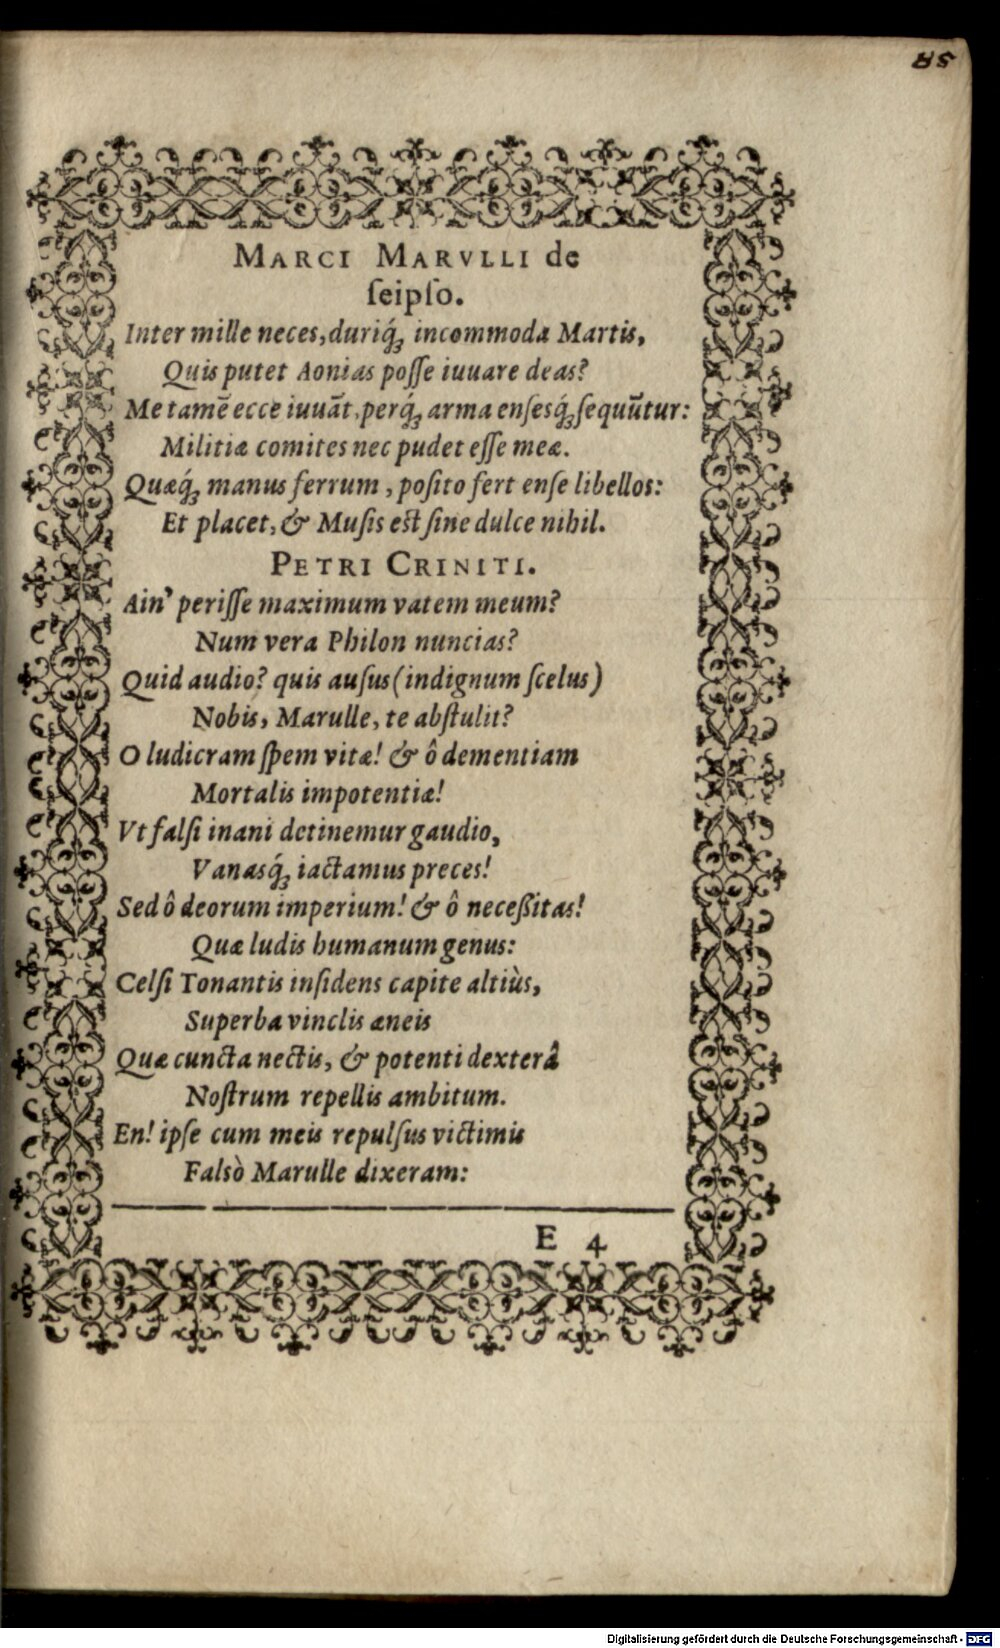 85
MARCI MARVLLI de
ſeipſo.
Inter mille neces, duriq́ꝫ incommoda Martis,
Quis putet Aonias poſſe iuuare deas?
Me tamē ecce iuuāt, perq́ꝫ arma enſesq́ꝫ ſequūtur:
Militiæ comites nec pudet eſſe meæ.
Quæq́ꝫ manus ferrum, poſito fert enſe libellos:
Et placet, & Muſis est ſine dulce nihil.
PETRI CRINITI.
Ain' periſſe maximum vatem meum?
Num vera Philon nuncias?
Quid audio? quis auſus (indignum ſcelus)
Nobis, Marulle, te abſtulit?
O ludicram ſpem vitæ! & ô dementiam
Mortalis impotentiæ!
Vt falſi inani detinemur gaudio,
Vanasq́ꝫ iactamus preces!
Sed ô deorum imperium! & ô neceßitas!
Quæ ludis humanum genus:
Celſi Tonantis inſidens capite altiùs,
Superba vinclis æneis
Quæ cuncta nectis, & potenti dexterâ
Noſtrum repellis ambitum.
En! ipſe cum meis repulſus victimis
Falsò Marulle dixeram:
E 4
Digitalisierung gefördert durch die Deutsche Forschungsgemeinschaft - DFG